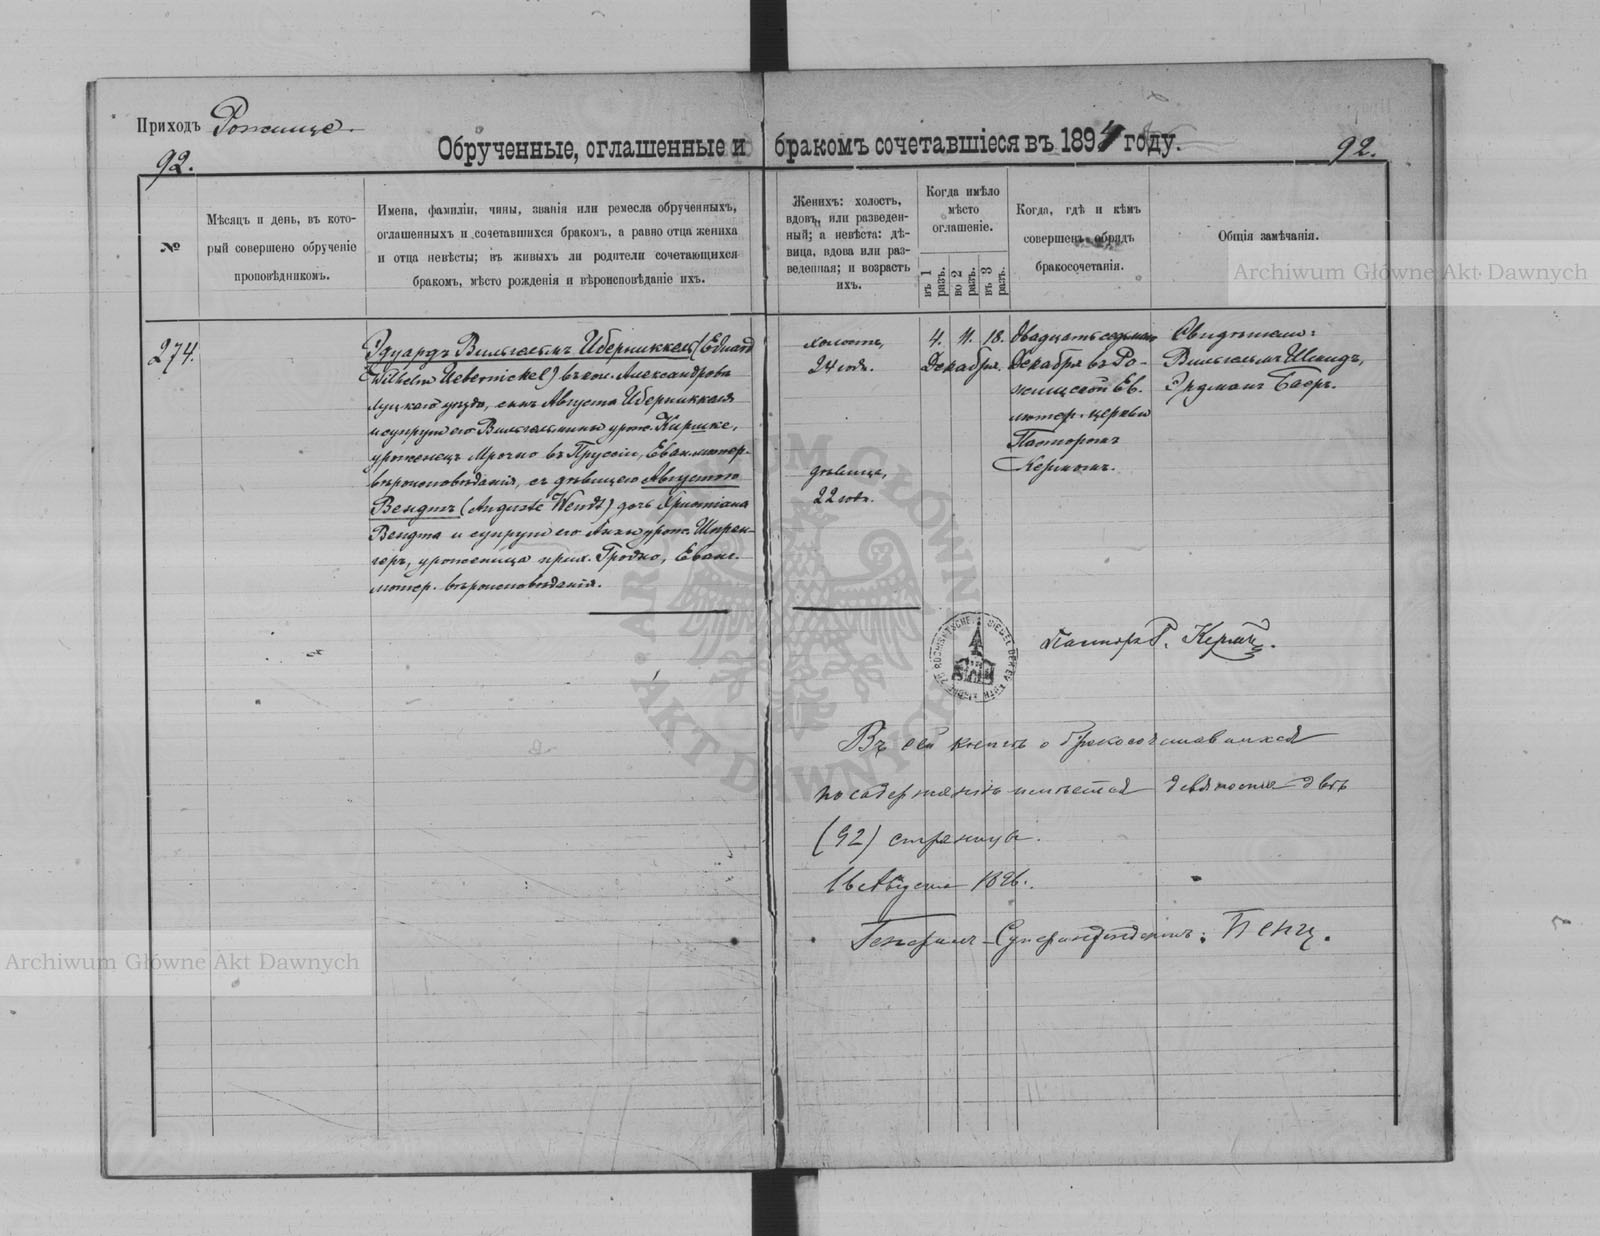 Приходъ Рожище
92.
Обрученные, оглашенные и бракомъ сочетавшіеся въ 1894 году.
92.
№
Мѣсяцъ и день, въ кото-
рый совершено обрученіе
проповѣдникомъ.
Имена, фамиліи, чины, званія или ремесла обрученныхъ,
оглашенныхъ и сочетавшихся бракомъ, а равно отца жениха
и отца невѣсты; въ живыхъ ли родители сочетающихся
бракомъ, мѣсто рожденія и вѣроисповѣданіе ихъ.
Женихъ: холостъ,
вдовъ, или разведен-
ный; а невѣста: дѣ-
вица, вдова или раз-
веденная; и возрастъ
ихъ.
Когда имѣло
мѣсто
оглашеніе.
въ 1 разъ.
во 2 разъ.
въ 3 разъ.
Когда, гдѣ и кѣмъ
совершенъ обрядъ
бракосочетанія.
Общія замѣчанія.
274.
Эдуардъ Вильгельмъ Иберниккель (Eduard
Wilhelm Uebernickel) въ кол. Александровъ
Луцкаго уѣзда, сынъ Августа Иберниккеля
и супруги его Вильгельмины урож. Киршке,
уроженецъ Мрочно въ Пруссіи, Еван. лютер.
вѣроисповѣданія, съ дѣвицею Августою
Вендтъ (Auguste Wendt) дочь Христіана
Вендта и супруги его Анны урож. Шпрен-
геръ, уроженица прих. Гродно, Еванг.
лютер. вѣроисповѣданія.
холостъ,
24 года.
дѣвица,
22 года.
4. 11. 18.
Декабря.
Двадцать седьмого
Декабря въ Ро-
жищской Ев.
лютер. церкви
Пасторомъ
Кермомъ.
Свидѣтели:
Вильгельмъ Шмидъ,
Эрдманъ Баеръ.
Пасторъ Р. Кермъ.
SIEGEL DER EV. LUTH. KIRCHE ZU ROSHISCHTSCHE
Въ сей книгѣ о бракосочетавшихся
по содержанію имѣется девяносто двѣ
(92) страницы.
16 Августа 1896.
Генералъ-Суперинтендентъ: Пенгу.
Archiwum Główne Akt Dawnych
Archiwum Główne Akt Dawnych
ARCHIWUM GŁÓWNE AKT DAWNYCH